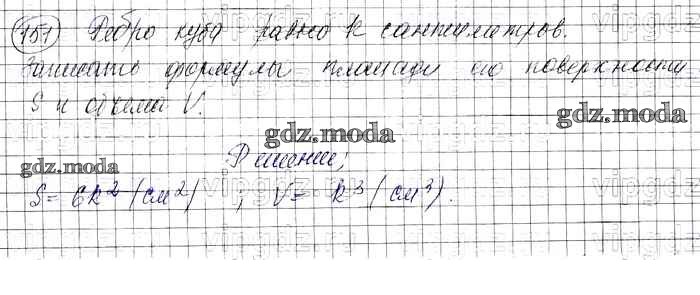 151 Ребро куба равно k сантиметров.
Записать формулы площади его поверхности
S и объема V.
gdz.moda
gdz.moda
Решение;
gdz.moda
S = 6k² (см²) ; V = k³ (см³).